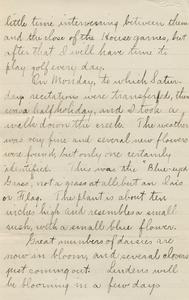 little time intervening between them
and the close of the House games, but
after that I will have time to
play golf every day.
On Monday, to which Satur-
day recitations were transferred, there
was a half holiday, and I took a
walk down the creek. The weather
was very fine and several new flowers
were found, but only one certainly
identified. This was the "Blue-eyed
Grass, not a grass at all but an Iris
or Flag. The plant is about ten
inches high and resembles a small
rush, with a small blue flower.
Great numbers of daisies are
now in bloom, and several clovers
just coming out. Lindens will
be blooming in a few days